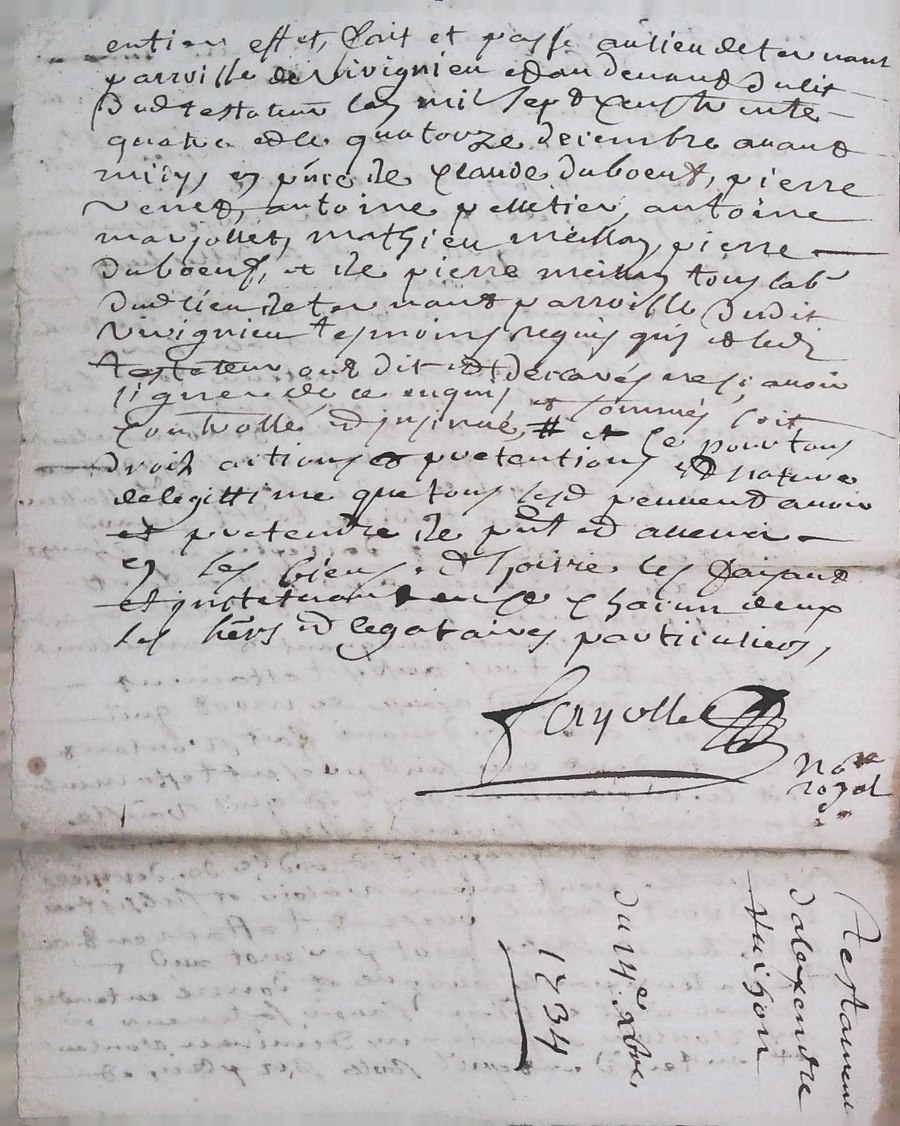 entier effet, fait et passé au lieu de ternant
parroisse de Virignieu et au devant du lit
dud testateur lan mil sept cens trente
quatre et le quatorze decembre avant
midy, en pnce de Claude duboeuf, pierre
Verne, antoine pelletier, antoine
marjollet, mathieu meilland, pierre
duboeuf, et de pierre meilland tous lab
dud lieu de ternant parroisse dudit
Virignieu tesmoins requis qui et led
testateur ont dit et declarés ne scavoir
signer de ce enquis et sommés soit
Controllé et insinué # et ce pour tous
droits actions et pretentions et nature
de legittime que tous lesd peuvent avoir
et pretendre de pnt et advenir
en ses biens et hoirie les faisant
et instituant en ce chacun deux
ses hers et legataires particuliers,
Fayolle
Nore
royal
Testament
dalexendre
du 14e xbre
1734